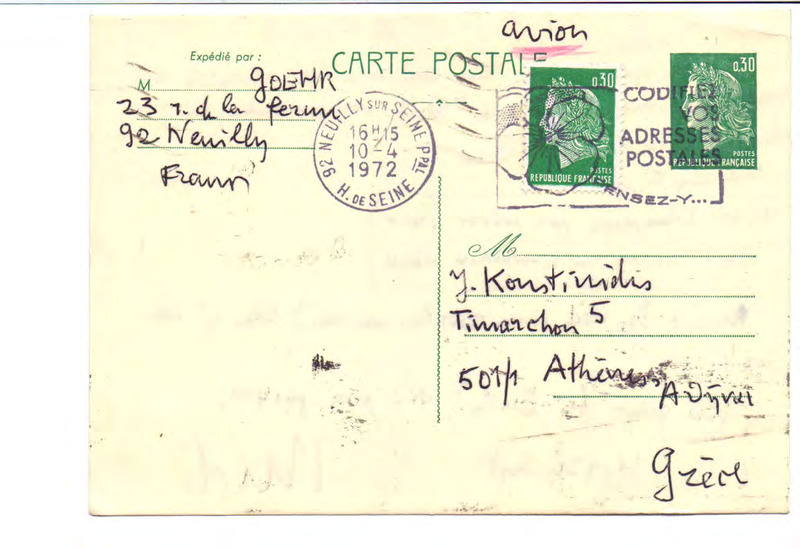 avion
Expédié par :
CARTE POSTALE
M GOEHR
23 r. de la ferme
92 Neuilly
France
92 NEUILLY SUR SEINE PPAL
16H15
10-4
1972
H. DE SEINE
0,30
POSTES
REPUBLIQUE FRANÇAISE
0,30
POSTES
REPUBLIQUE FRANÇAISE
CODIFIEZ
VOS
ADRESSES
POSTALES
ENSEZ-Y...
M
J. Konstinidis
Timarchon 5
501/1 Athènes
Αθήναι
Grèce